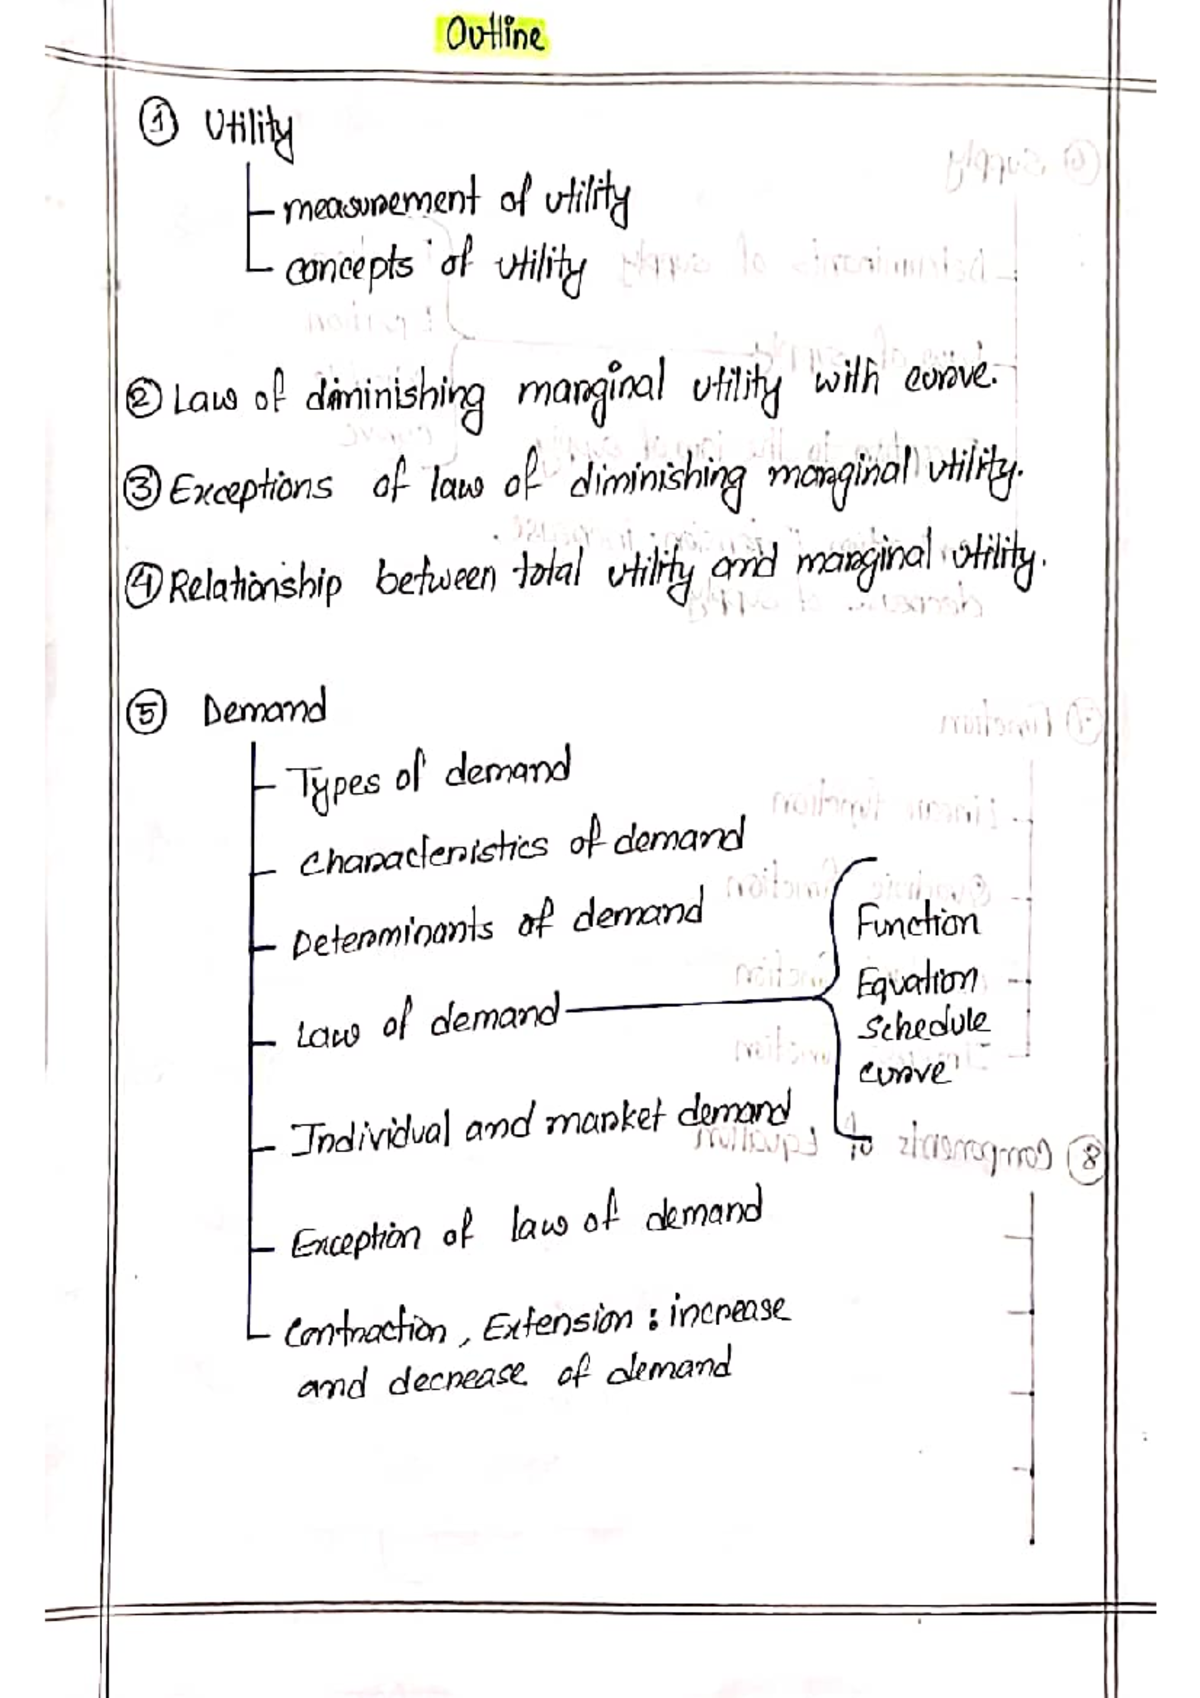 Outline
① Utility
measurement of utility
concepts of utility
② Law of diminishing marginal utility with curve.
③ Exceptions of law of diminishing marginal utility.
④ Relationship between total utility and marginal utility.
⑤ Demand
Types of demand
Characteristics of demand
Determinants of demand
Law of demand
Function
Equation
Schedule
curve
Individual and market demand
Exception of law of demand
Contraction, Extension : increase
and decrease of demand